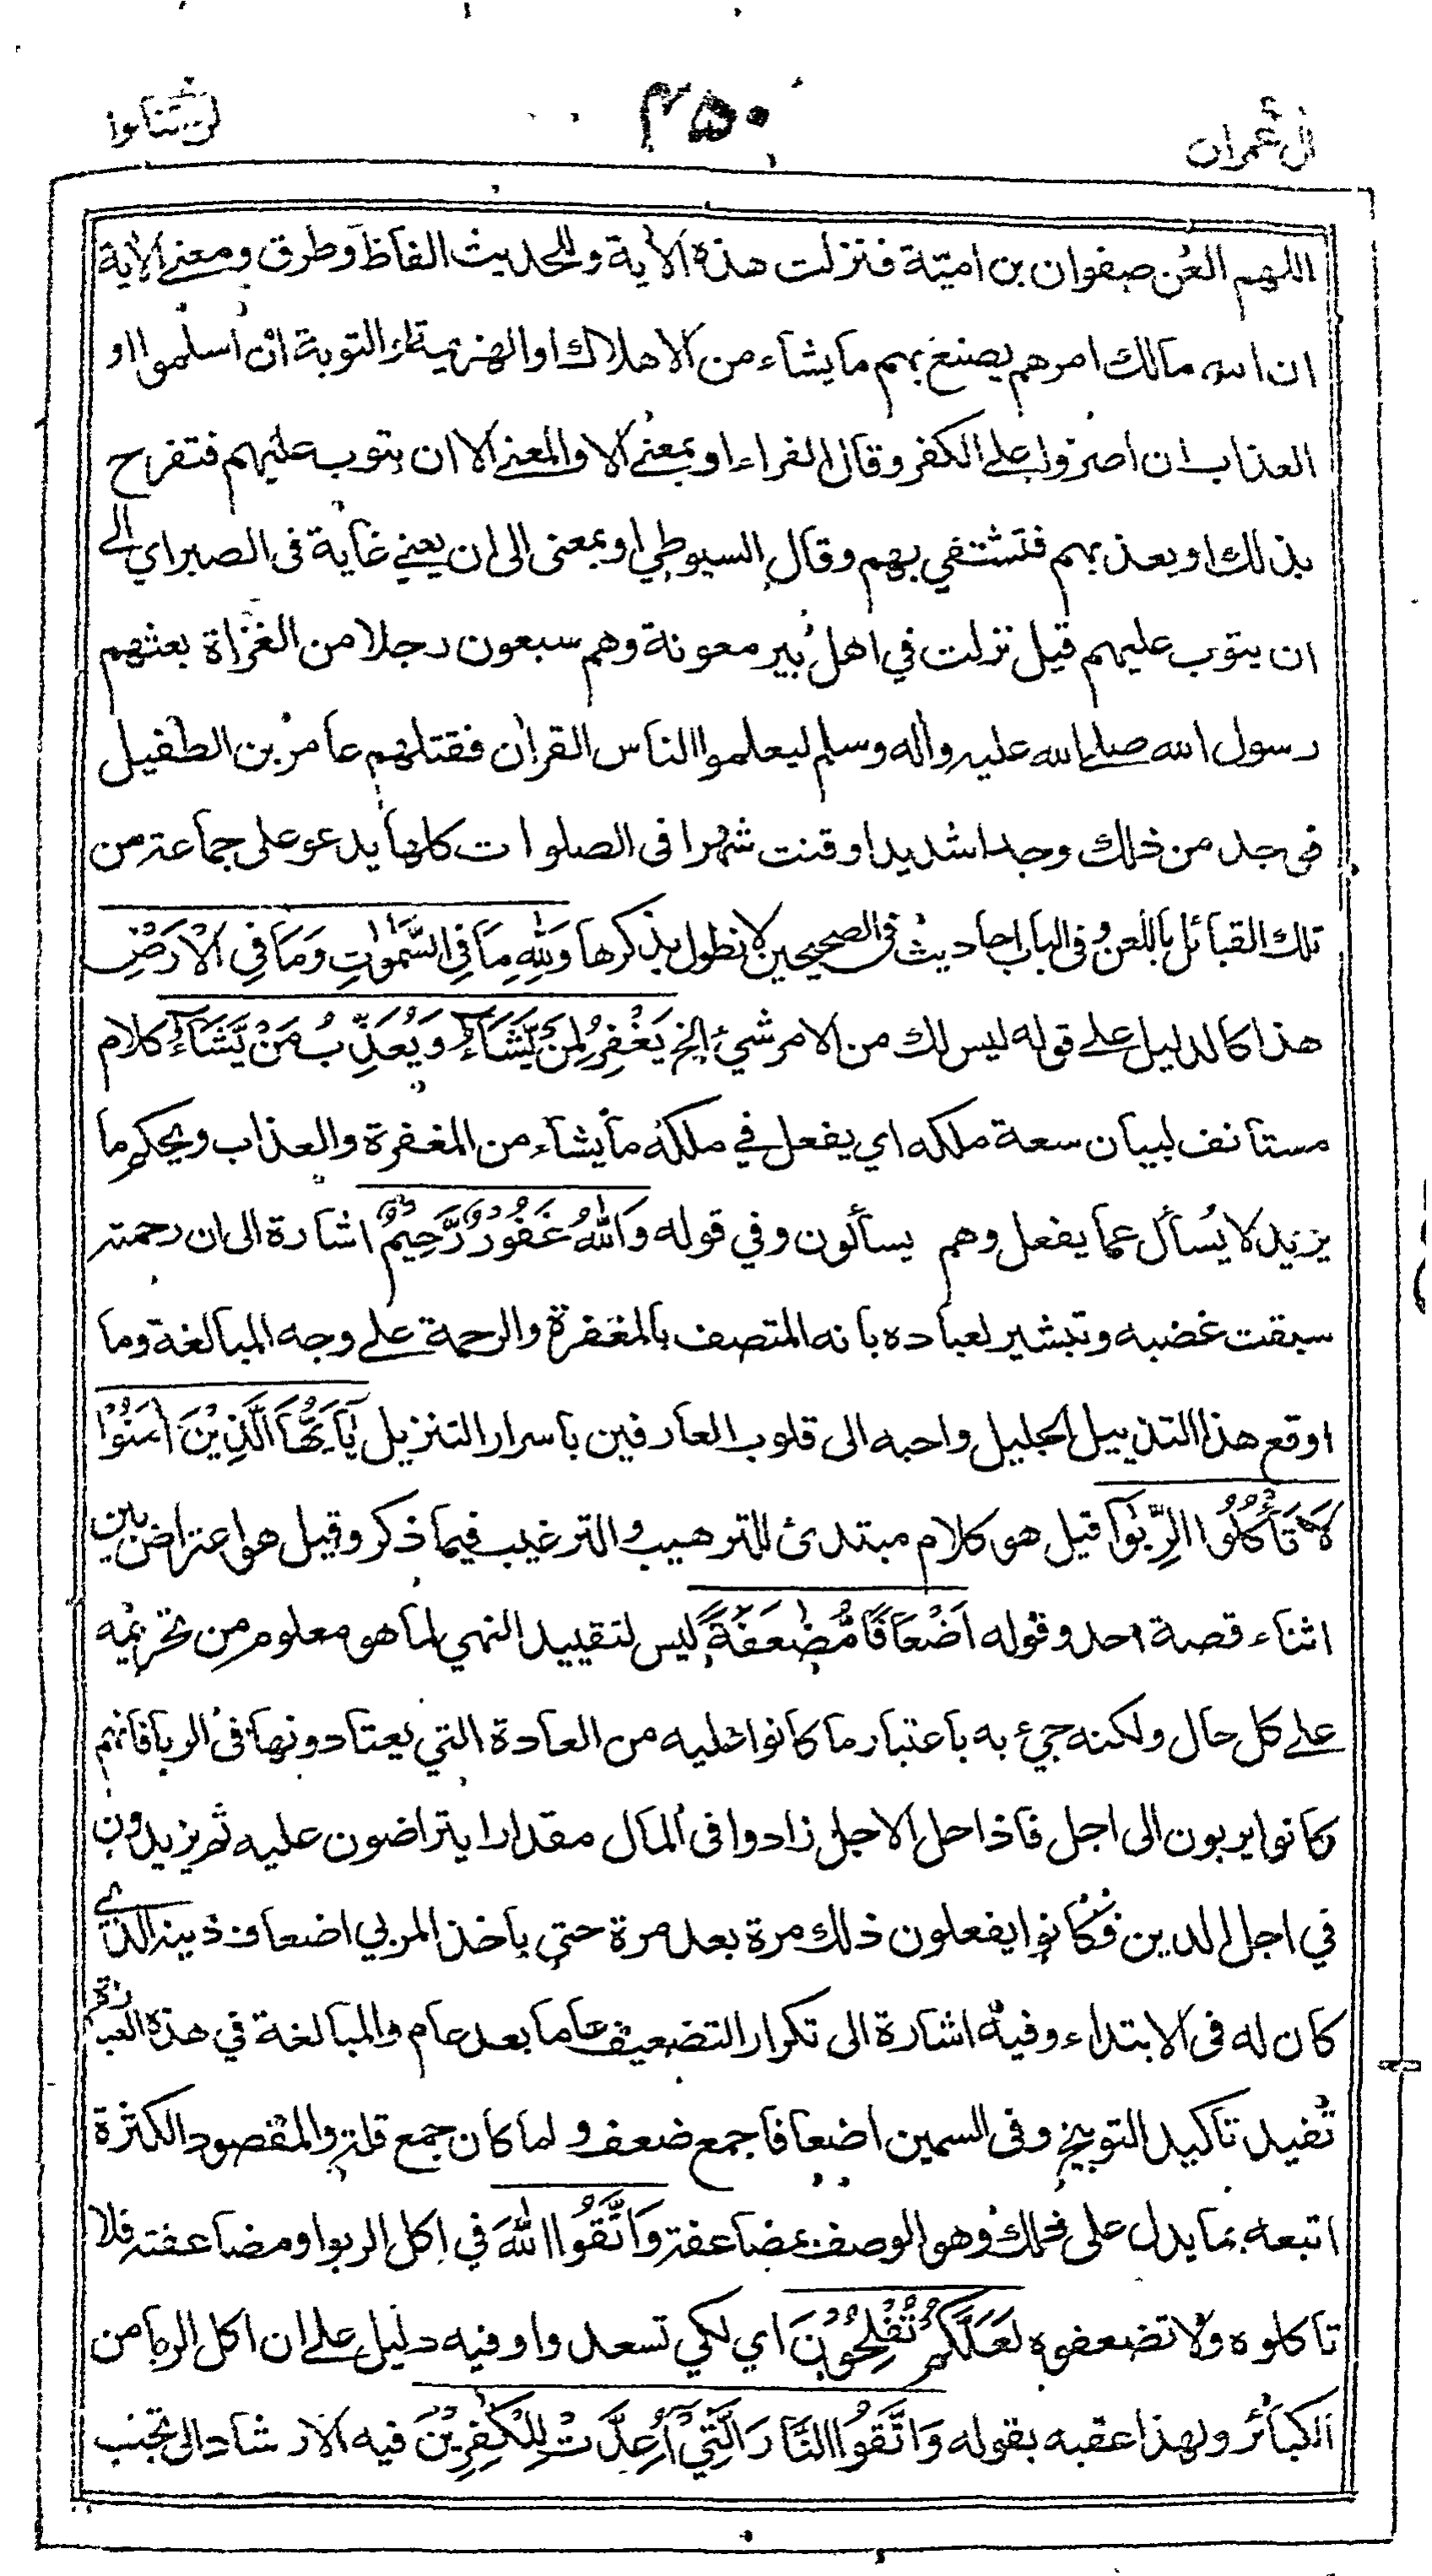 اٰل عمران
۴۵۰
لن تنالوا
اللهم العن صفوان بن امية فنزلت هذه الأية وللحديث الفاظ وطرق ومعنے الأية
ان الله مالك امرهم يصنع بهم ما يشاء من الاهلاك او الهزيمة او التوبة ان اسلموا او
العذاب ان اصروا علے الكفر وقال الفراء او بمعنے الا والمعنے الا ان يتوب عليهم فتفرح
بذلك او يعذبهم فتشتفي بهم وقال السيوطي او بمعنى الى ان يعني غاية فى الصبر اي الے
ان يتوب عليهم قيل نزلت في اهل بير معونة وهم سبعون رجلا من الغزاة بعثهم
رسول الله صلے الله عليه واله وسلم ليعلموا الناس القران فقتلهم عامر بن الطفيل
فوجد من ذلك وجدا شديدا وقنت شهرا فى الصلوات كلها يدعو على جماعة من
تلك القبائل باللعن وفى الباب احاديث فى الصحيحين لا نطول بذكرها وَلِلّٰهِ مَا فِي السَّمٰوٰتِ وَمَا فِي الْاَرْضِ
هذا كالدليل علے قوله ليس لك من الامر شيء الخ يَغْفِرُ لِمَنْ يَّشَآءُ وَيُعَذِّبُ مَنْ يَّشَآءُ كلام
مستأنف لبيان سعة ملكه اي يفعل في ملكه ما يشاء من المغفرة والعذاب ويحكم ما
يريد لا يُسأل عما يفعل وهم يسألون وفي قوله وَاللّٰهُ غَفُوْرٌ رَّحِيْمٌ اشارة الى ان رحمته
سبقت غضبه وتبشير لعباده بانه المتصف بالمغفرة والرحمة علے وجه المبالغة وما
اوقع هذا التذييل الجليل واحبه الى قلوب العارفين باسرار التنزيل يٰٓاَيُّهَا الَّذِيْنَ اٰمَنُوْا
لَا تَأْكُلُوا الرِّبٰوٓا قيل هو كلام مبتدئ للترهيب والترغيب فيما ذكر وقيل هو اعتراض بين
اثناء قصة احد وقوله اَضْعَافًا مُّضٰعَفَةً ليس لتقييد النهي لما هو معلوم من تحريمه
علے كل حال ولكنه جيء به باعتبار ما كانوا عليه من العادة التي يعتادونها فى الربا فانهم
كانوا يربون الى اجل فاذا حل الاجل زادوا فى المال مقدارا يتراضون عليه ثم يزيدون
في اجل الدين فكانوا يفعلون ذلك مرة بعد مرة حتى ياخذ المربي اضعاف دينه الذے
كان له فى الابتداء وفيه اشارة الى تكرار التضعيف عاما بعد عام والمبالغة في هذه العبارة
تفيد تاكيد التوبيخ وفى السمين اضعافا جمع ضعف ولما كان جمع قلة والمقصود الكثرة
اتبعه بما يدل على ذلك وهو الوصف بمضاعفة وَاتَّقُوا اللّٰهَ في اكل الربوا ومضاعفته فلا
تاكلوه ولا تضعفوه لَعَلَّكُمْ تُفْلِحُوْنَ اي لكي تسعدوا وفيه دليل علے ان اكل الربا من
الكبائر ولهذا عقبه بقوله وَاتَّقُوا النَّارَ الَّتِيْٓ اُعِدَّتْ لِلْكٰفِرِيْنَ فيه الارشاد الى تجنب